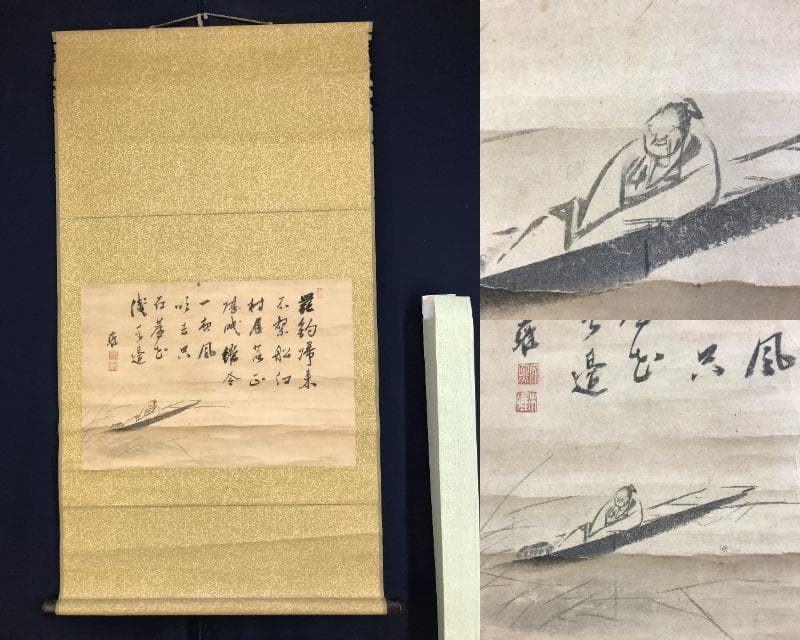 罷釣歸来
不繫船江
村月落正
堪眠縱令
一夜風
吹去只
在蘆花
淺水邊